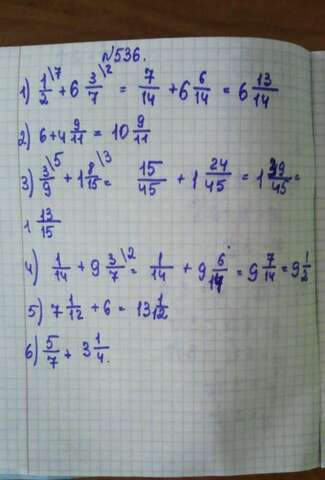 №536.
1) 1/2 \7 + 6 3/7 \2 = 7/14 + 6 6/14 = 6 13/14
2) 6 + 4 9/11 = 10 9/11
3) 3/9 \5 + 1 8/15 \3 = 15/45 + 1 24/45 = 1 39/45 =
1 13/15
4) 1/14 + 9 3/7 \2 = 1/14 + 9 6/14 = 9 7/14 = 9 1/2
5) 7 1/12 + 6 = 13 1/12
6) 5/7 + 3 1/4.